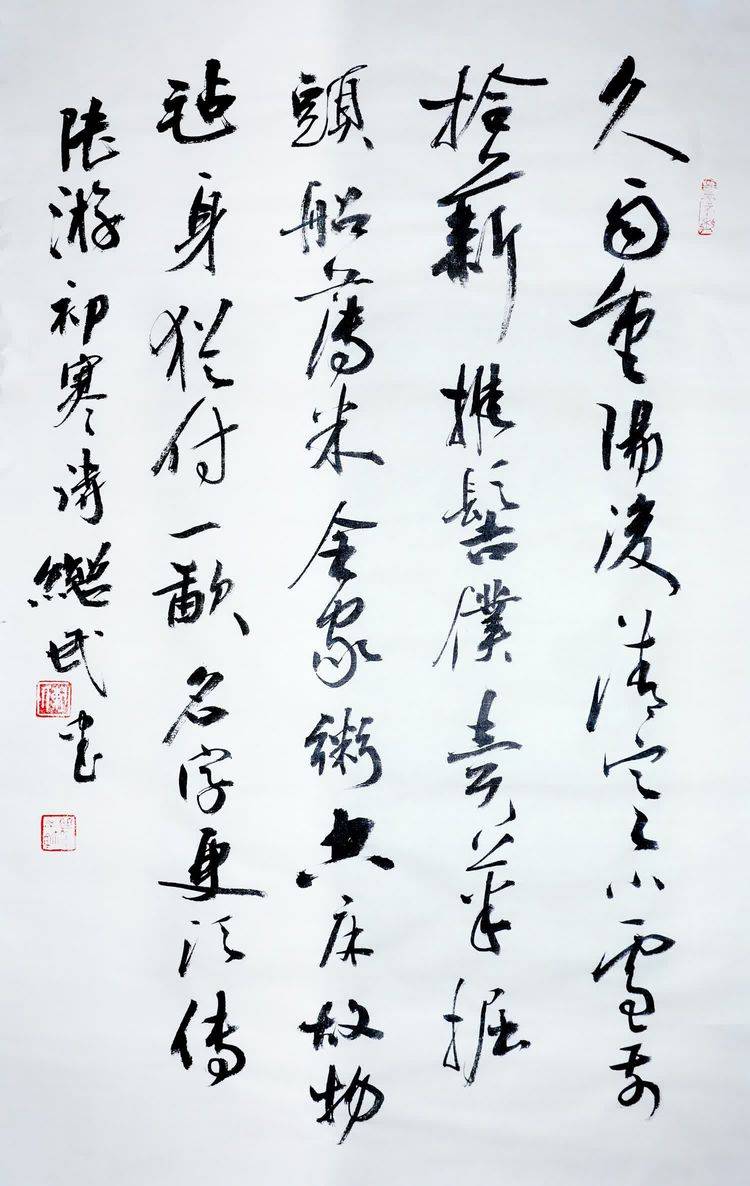 久雨重陽後清寒小雪前
拾薪椎髻僕賣菜掘
頭船薄米全家粥空床故物
氈身猶付一歃名字更須傳
陸游初寒詩 民書